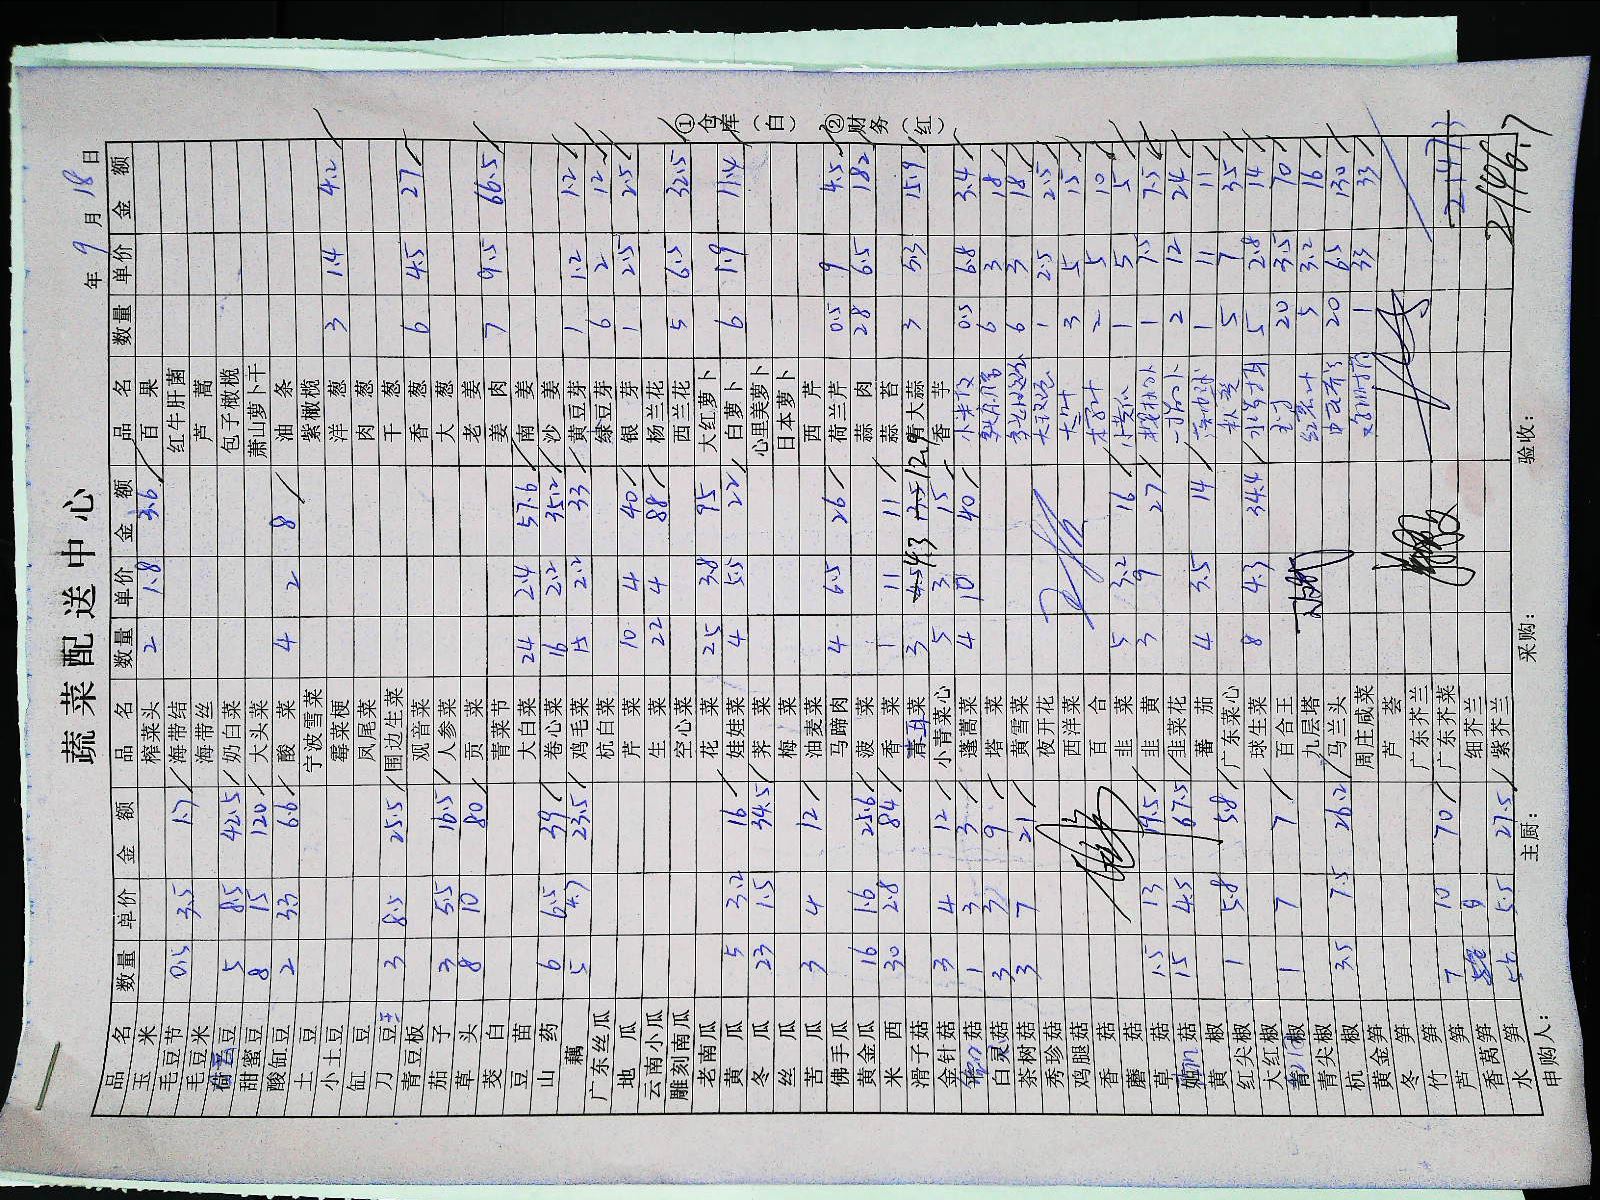 蔬菜配送中心
年 9 月 18 日
品名 数量 单价 金额 品名 数量 单价 金额 品名 数量 单价 金额
玉米 榨菜头 2 1.8 3.6 百果
毛豆节 0.5 3.5 1.7 海带结 红牛肝菌
毛豆米 海带丝 芦蒿
荷兰豆 5 8.5 42.5 奶白菜 包子橄榄
甜蜜豆 8 15 120 大头菜 萧山萝卜干
酸缸豆 2 3.3 6.6 酸菜 4 2 8 油条
土豆 宁波雪菜 紫橄榄
小土豆 霉菜梗 洋葱 3 1.4 4.2
缸豆 凤尾菜 肉葱
刀豆 3 8.5 25.5 围边生菜 干葱
青豆板 观音菜 香葱 6 4.5 27
茄子 3 5.5 16.5 人参菜 大葱
草头 8 10 80 贡菜 老姜 7 9.5 66.5
茭白 青菜节 姜肉
豆苗 大白菜 24 2.4 57.6 南姜
山药 6 6.5 39 卷心菜 16 2.2 35.2 沙姜
藕 5 4.7 23.5 鸡毛菜 15 2.2 33 黄豆芽 1 1.2 1.2
广东丝瓜 杭白菜 绿豆芽 6 2 12
地瓜 芹菜 10 4 40 银芽 1 2.5 2.5
云南小瓜 生菜 22 4 88 杨兰花
雕刻南瓜 空心菜 西兰花 5 6.5 32.5
老南瓜 花菜 25 3.8 95 大红萝卜
黄瓜 5 3.2 16 娃娃菜 4 5.5 22 白萝卜 6 1.9 11.4
冬瓜 23 1.5 34.5 荠菜 心里美萝卜
丝瓜 梅菜 日本萝卜
苦瓜 3 4 12 油麦菜 西芹
佛手瓜 马蹄肉 4 6.5 26 荷兰芹 0.5 9 4.5
黄金瓜 16 1.6 25.6 菠菜 蒜肉 28 6.5 182
米西 30 2.8 84 香菜 1 11 11 蒜苔
滑子菇 菜 3 4.5 4.3 13.5 12.9 青大蒜 3 5.3 15.9
金针菇 3 4 12 小青菜心 5 3 15 香芋
菇 1 3 3 蓬蒿菜 4 10 40 小米 0.5 6.8 3.4
白灵菇 3 3 9 塔菜 6 3 18
茶树菇 3 7 21 黄雪菜 6 3 18
秀珍菇 夜开花 1 2.5 2.5
鸡腿菇 西洋菜 大叶 3 5 15
香菇 百合 2 5 10
蘑菇 韭菜 5 3.2 16 小黄瓜 1 5 5
草菇 1.5 13 19.5 韭黄 3 9 27 1 7.5 7.5
菇 15 4.5 67.5 韭菜花 2 12 24
黄椒 番茄 4 3.5 14 1 11 11
红尖椒 1 5.8 5.8 广东菜心 秋葵 5 7 35
大红椒 球生菜 8 4.3 34.4 5 2.8 14
青椒 1 7 7 百合王 20 3.5 70
青尖椒 九层塔 红 5 3.2 16
杭椒 3.5 7.5 26.2 马兰头 20 6.5 130
黄金笋 周庄咸菜 1 33 33
冬笋 芦荟
竹笋 广东芥兰
芦笋 7 10 70 广东芥菜
香莴笋 细芥兰
水笋 5 5.5 27.5 紫芥兰
2147.3
2146.7
申购人： 主厨： 采购： 验收：
①仓库（白） ②财务（红）